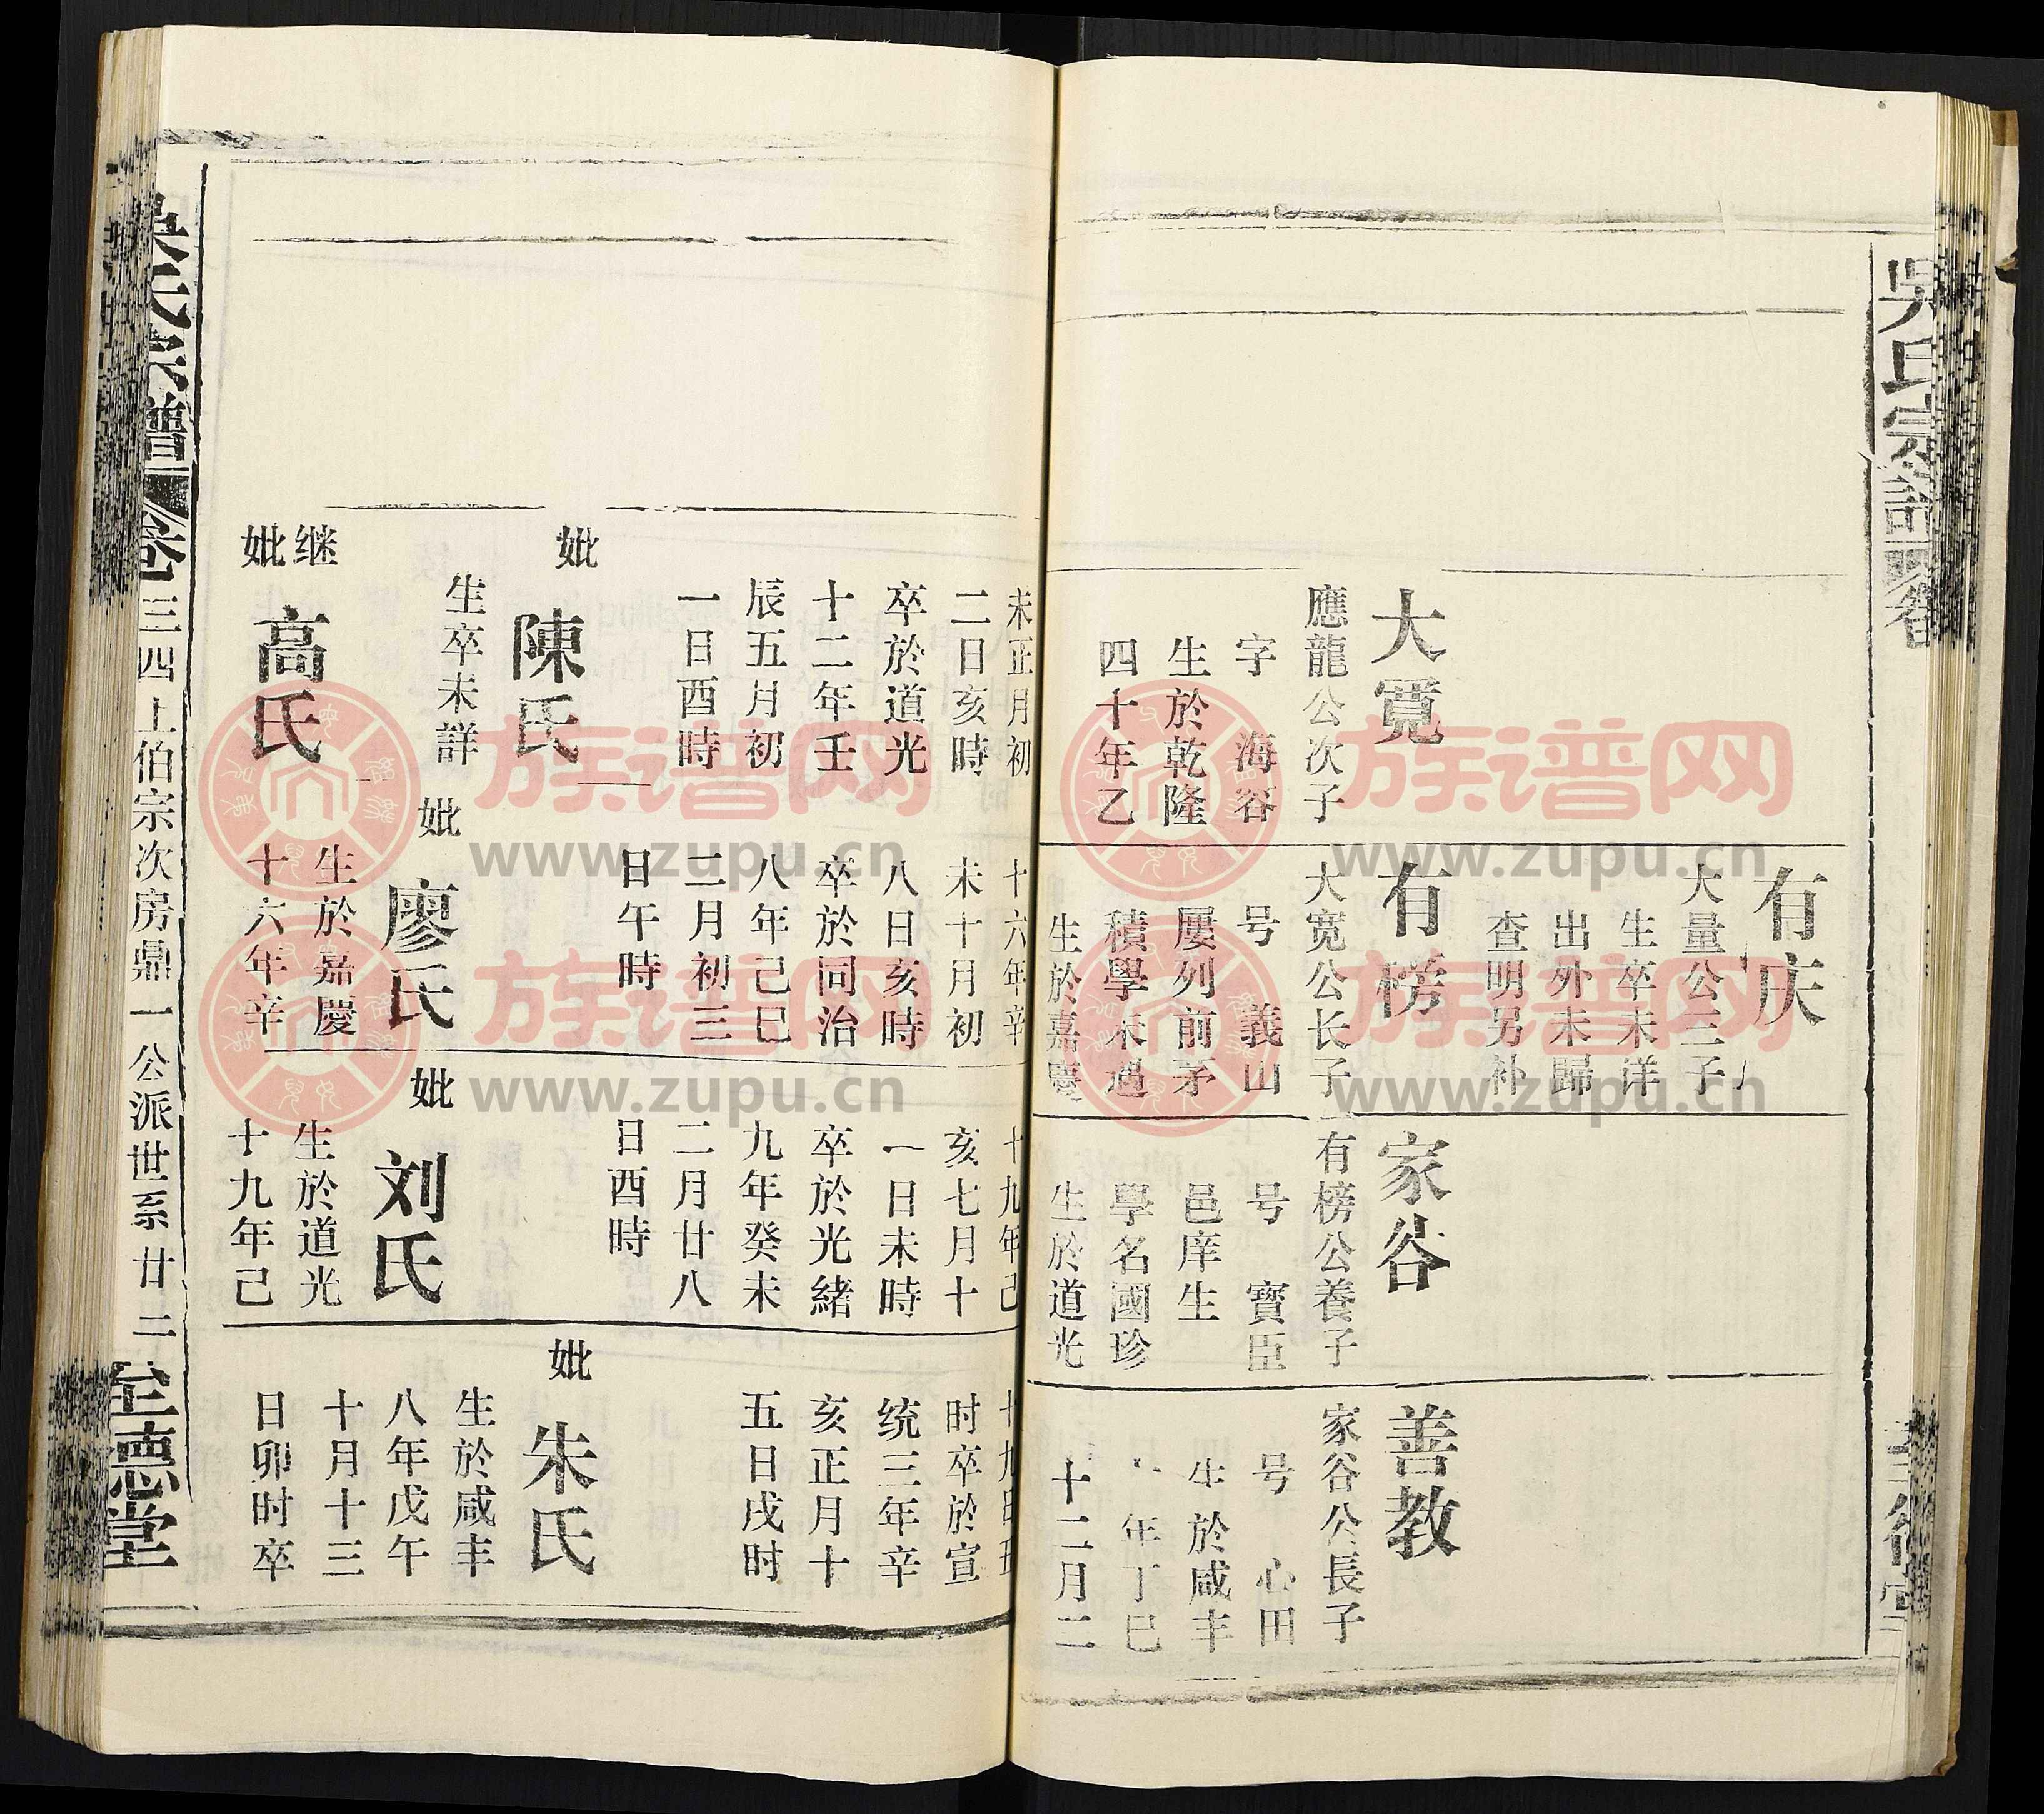 吳氏宗譜
卷
大寬
應龍公次子
字 海容
生於乾隆
四十年乙
未正月初
二日亥時
卒於道光
十二年壬
辰五月初
一日酉時
妣
陳氏
生卒未詳
继
妣
高氏
有庆
大量公三子
生卒未洋
出外未歸
查明另补
有榜
大宽公长子
号 義山
屢列前茅
積學未過
生於嘉慶
十六年辛
未十月初
八日亥時
卒於同治
八年己巳
二月初三
日午時
妣
廖氏
生於嘉慶
十六年辛
家谷
有榜公養子
号 寶臣
邑庠生
學名國珍
生於道光
十九年己
亥七月十
一日未時
卒於光緒
九年癸未
二月廿八
日酉時
妣
刘氏
生於道光
十九年己
善教
家谷公長子
号 心田
生於咸丰
年丁巳
十二月二
十九日丑
时卒於宣
统三年辛
亥正月十
五日戌时
妣
朱氏
生於咸丰
八年戊午
十月十三
日卯时卒
吳氏宗譜
卷三四上伯宗次房鼎一公派世系廿二
至德堂
族谱网
www.zupu.cn
族谱网
www.zupu.cn
族谱网
www.zupu.cn
族谱网
www.zupu.cn